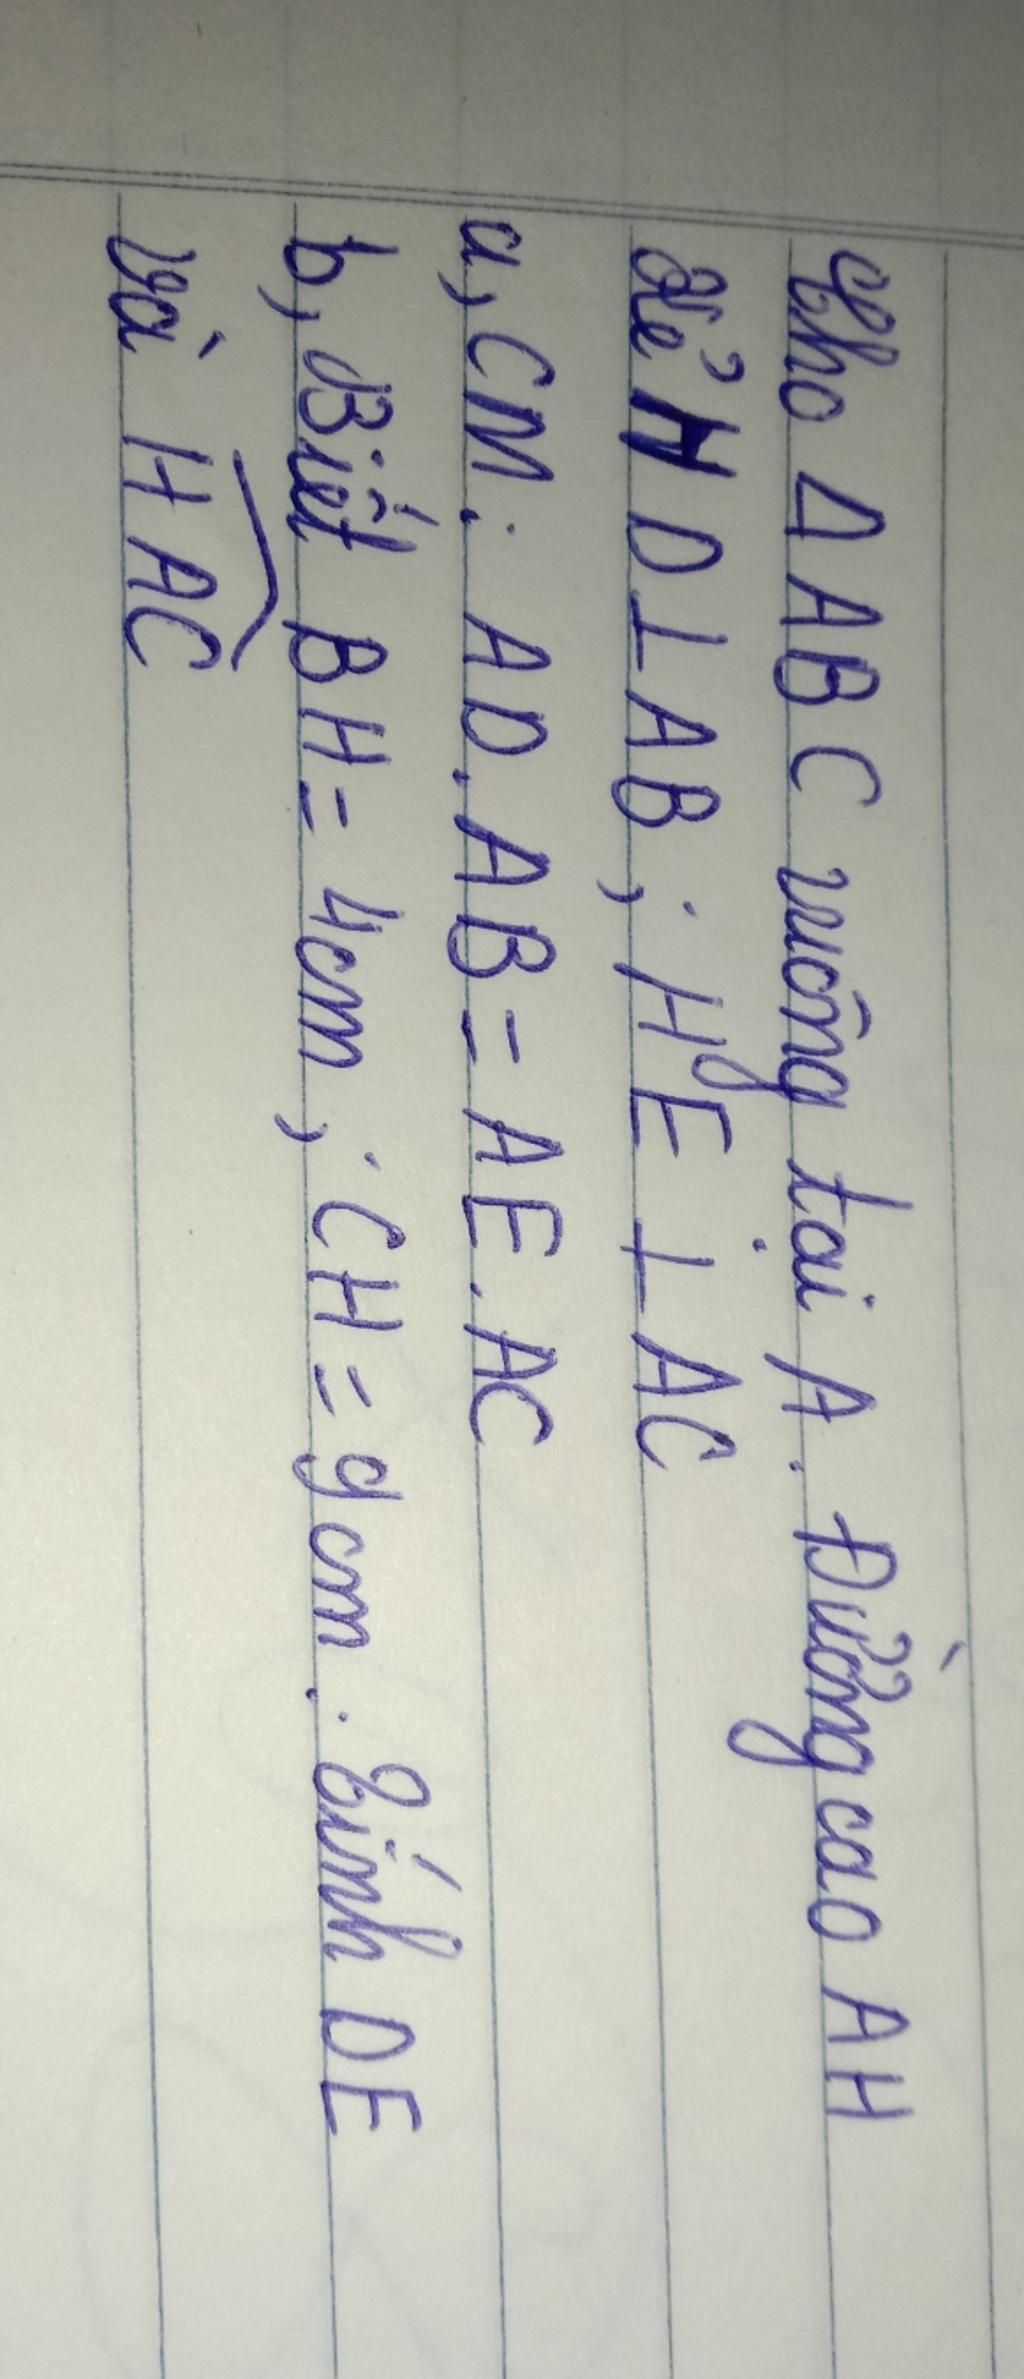 Cho Δ ABC vuông tại A. Đường cao AH
Kẻ HD⊥AB; HE ⊥ AC
a, CM: AD.AB = AE.AC
b, Biết BH = 4cm; CH = 9cm. Tính DE
và \widehat{HAC}